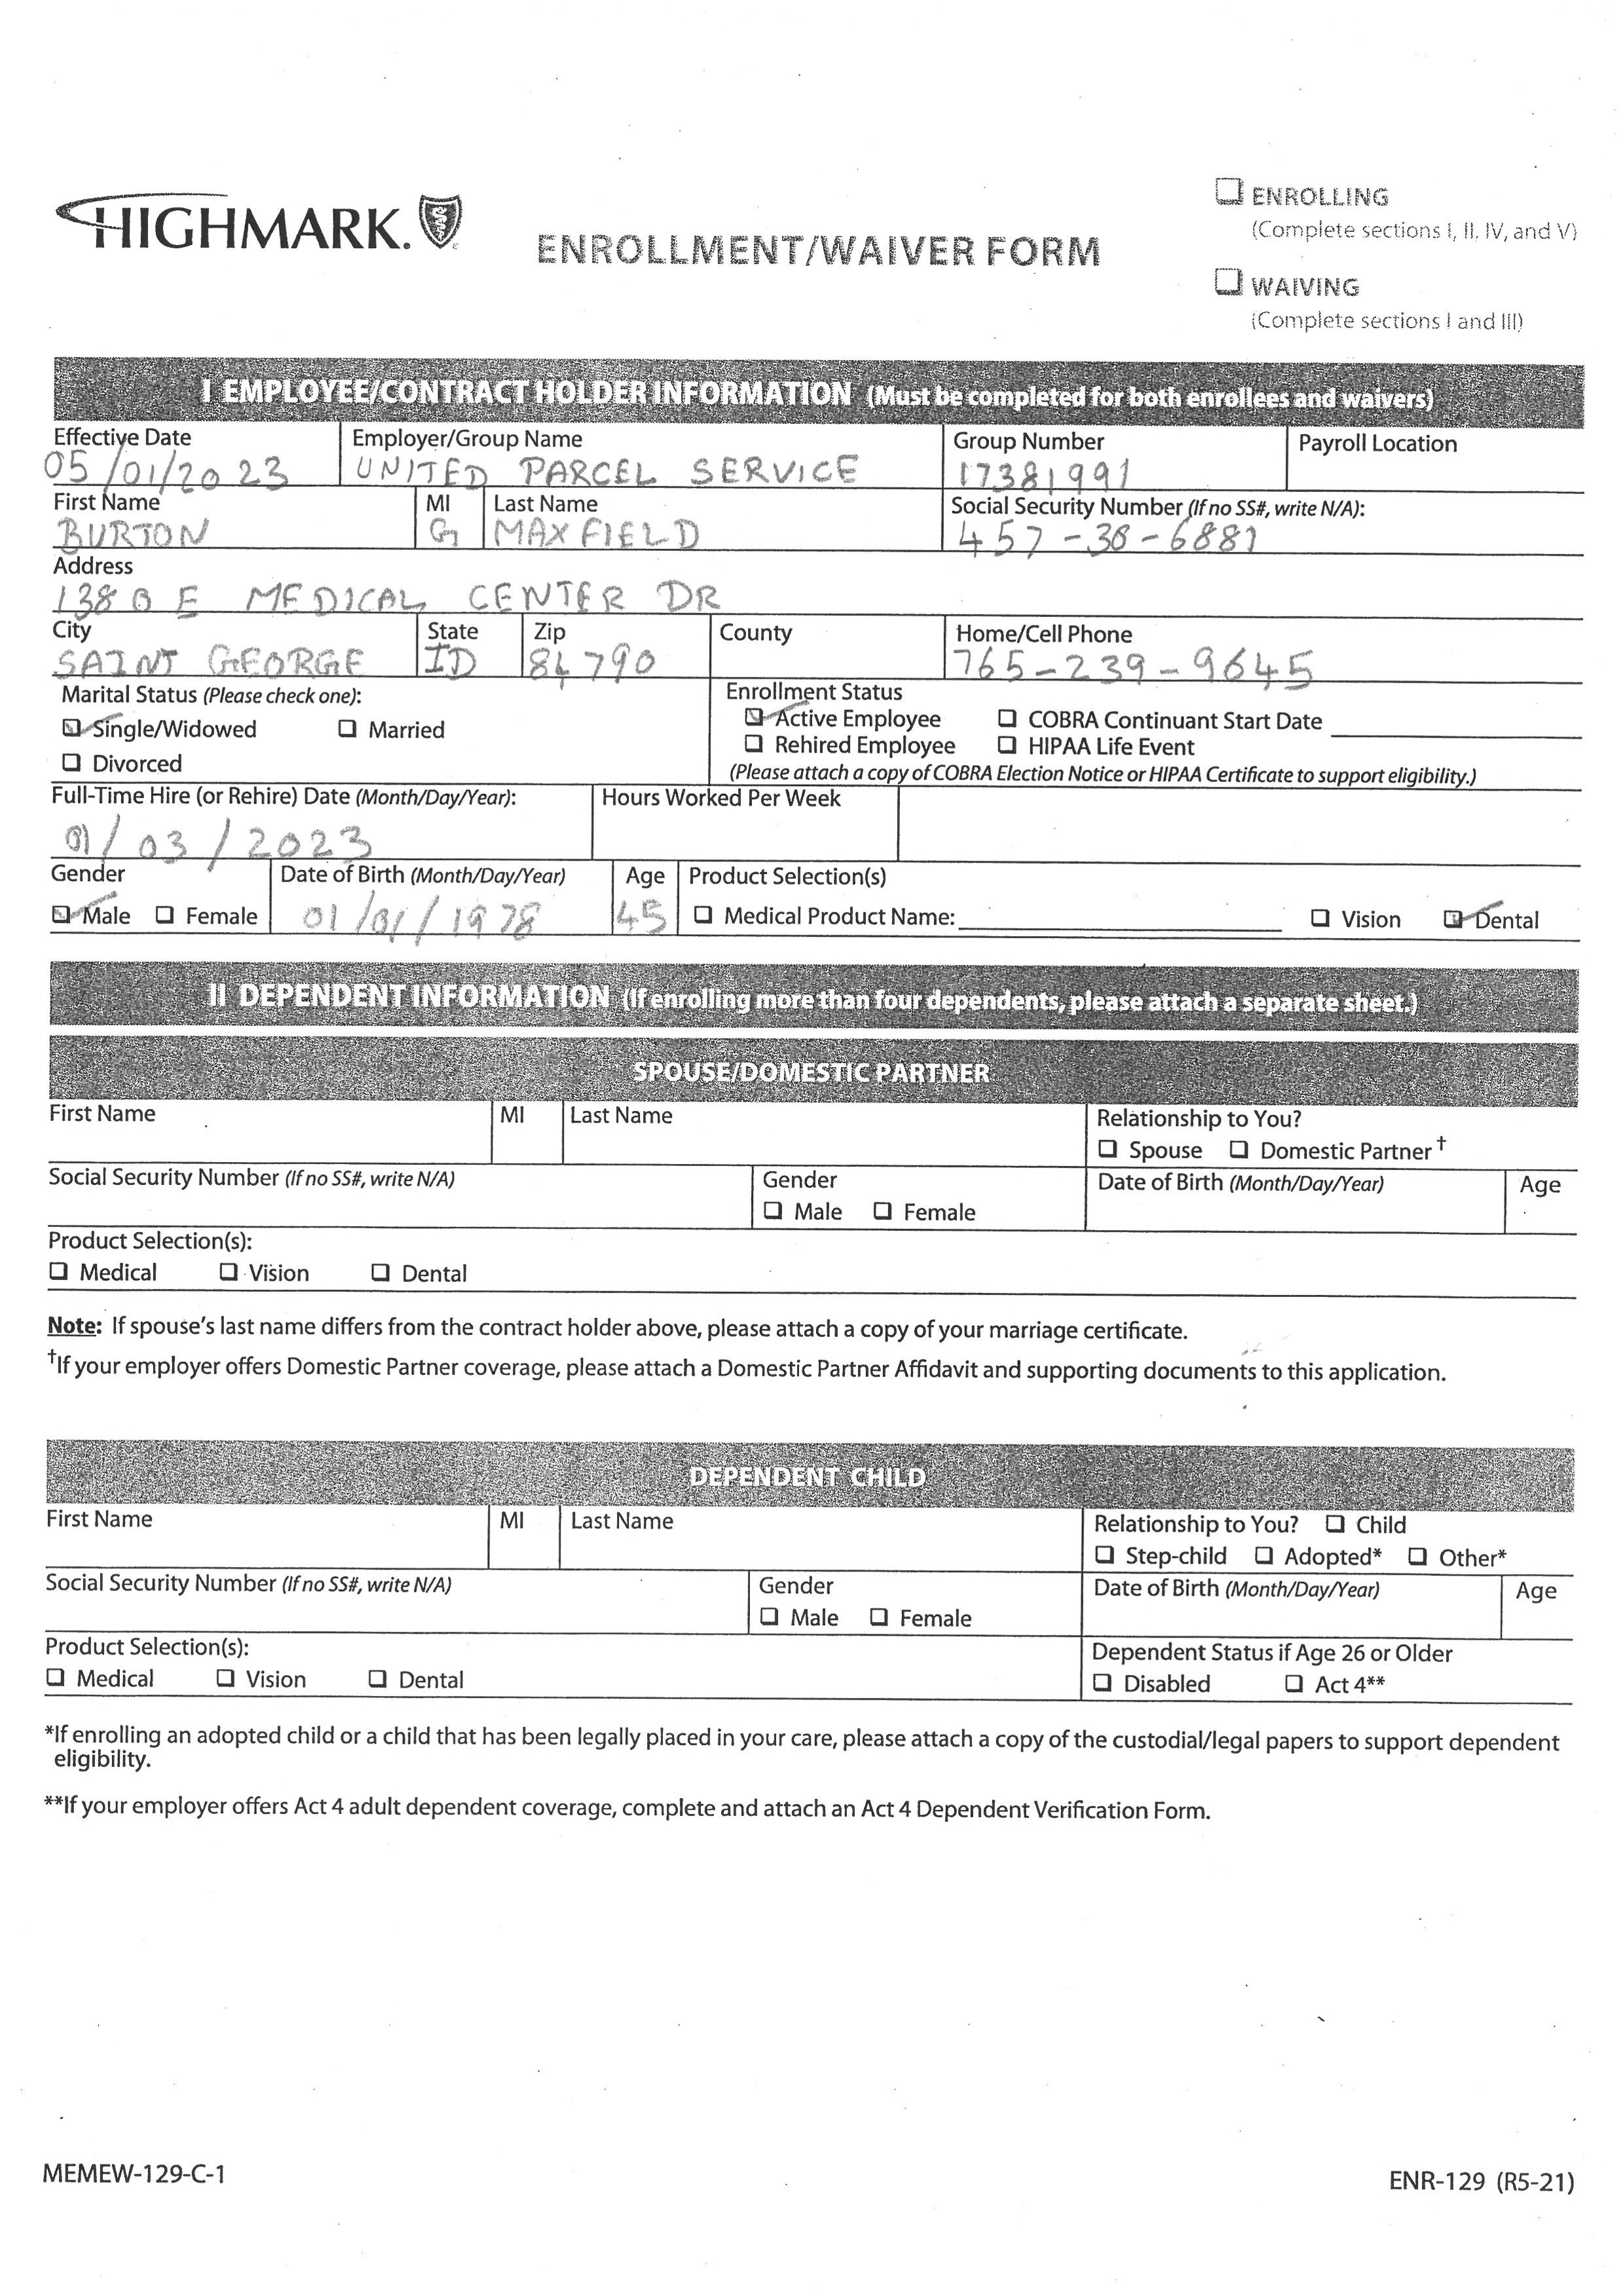 HIGHMARK.
ENROLLMENT/WAIVER FORM
❑ ENROLLING
(Complete sections I, II, IV, and V)
❑ WAIVING
(Complete sections I and III)
I EMPLOYEE/CONTRACT HOLDER INFORMATION (Must be completed for both enrollees and waivers)
Effective Date Employer/Group Name Group Number Payroll Location
05/01/2023 UNITED PARCEL SERVICE 17381991
First Name MI Last Name Social Security Number (If no SS#, write N/A):
BURTON G MAXFIELD 457-38-6881
Address
138 B E MEDICAL CENTER DR
City State Zip County Home/Cell Phone
SAINT GEORGE ID 84790 765-239-9645
Marital Status (Please check one): Enrollment Status
☑ Single/Widowed ❑ Married ☑ Active Employee ❑ COBRA Continuant Start Date
❑ Rehired Employee ❑ HIPAA Life Event
❑ Divorced (Please attach a copy of COBRA Election Notice or HIPAA Certificate to support eligibility.)
Full-Time Hire (or Rehire) Date (Month/Day/Year): Hours Worked Per Week
01/03/2023
Gender Date of Birth (Month/Day/Year) Age Product Selection(s)
☑ Male ❑ Female 01/01/1978 45 ❑ Medical Product Name: ❑ Vision ☑ Dental
II DEPENDENT INFORMATION (If enrolling more than four dependents, please attach a separate sheet.)
SPOUSE/DOMESTIC PARTNER
First Name MI Last Name Relationship to You?
❑ Spouse ❑ Domestic Partner†
Social Security Number (If no SS#, write N/A) Gender Date of Birth (Month/Day/Year) Age
❑ Male ❑ Female
Product Selection(s):
❑ Medical ❑ Vision ❑ Dental
Note: If spouse's last name differs from the contract holder above, please attach a copy of your marriage certificate.
†If your employer offers Domestic Partner coverage, please attach a Domestic Partner Affidavit and supporting documents to this application.
DEPENDENT CHILD
First Name MI Last Name Relationship to You? ❑ Child
❑ Step-child ❑ Adopted* ❑ Other*
Social Security Number (If no SS#, write N/A) Gender Date of Birth (Month/Day/Year) Age
❑ Male ❑ Female
Product Selection(s): Dependent Status if Age 26 or Older
❑ Medical ❑ Vision ❑ Dental ❑ Disabled ❑ Act 4**
*If enrolling an adopted child or a child that has been legally placed in your care, please attach a copy of the custodial/legal papers to support dependent
eligibility.
**If your employer offers Act 4 adult dependent coverage, complete and attach an Act 4 Dependent Verification Form.
MEMEW-129-C-1 ENR-129 (R5-21)